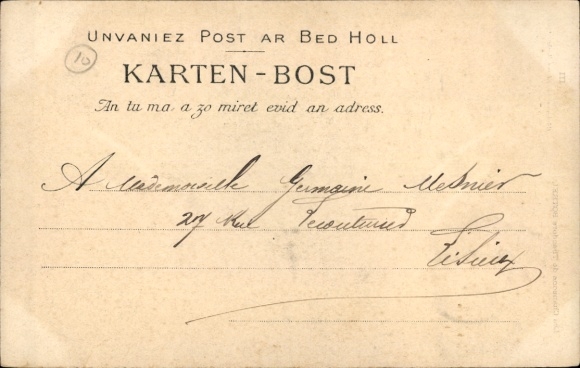 UNVANIEZ POST AR BED HOLL
10
KARTEN-BOST
An tu ma a zo miret evid an adress.
A Mademoiselle Germaine Mesnier
27 Rue
Lisieux